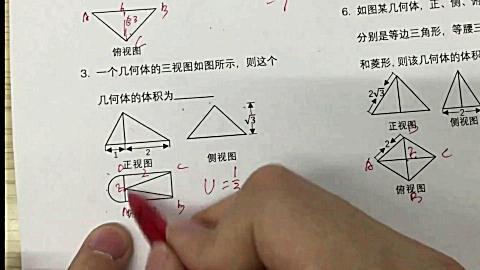 A
B
√3
C
俯视图
3. 一个几何体的三视图如图所示，则这个
几何体的体积为
√3
1
2
正视图
侧视图
D
2
C
2
A
b
V = 1/3
6. 如图某几何体，正、侧、俯
分别是等边三角形，等腰三
和菱形，则该几何体的体积
2√3
2
正视图
侧视图
D
2
2
A
C
B
俯视图